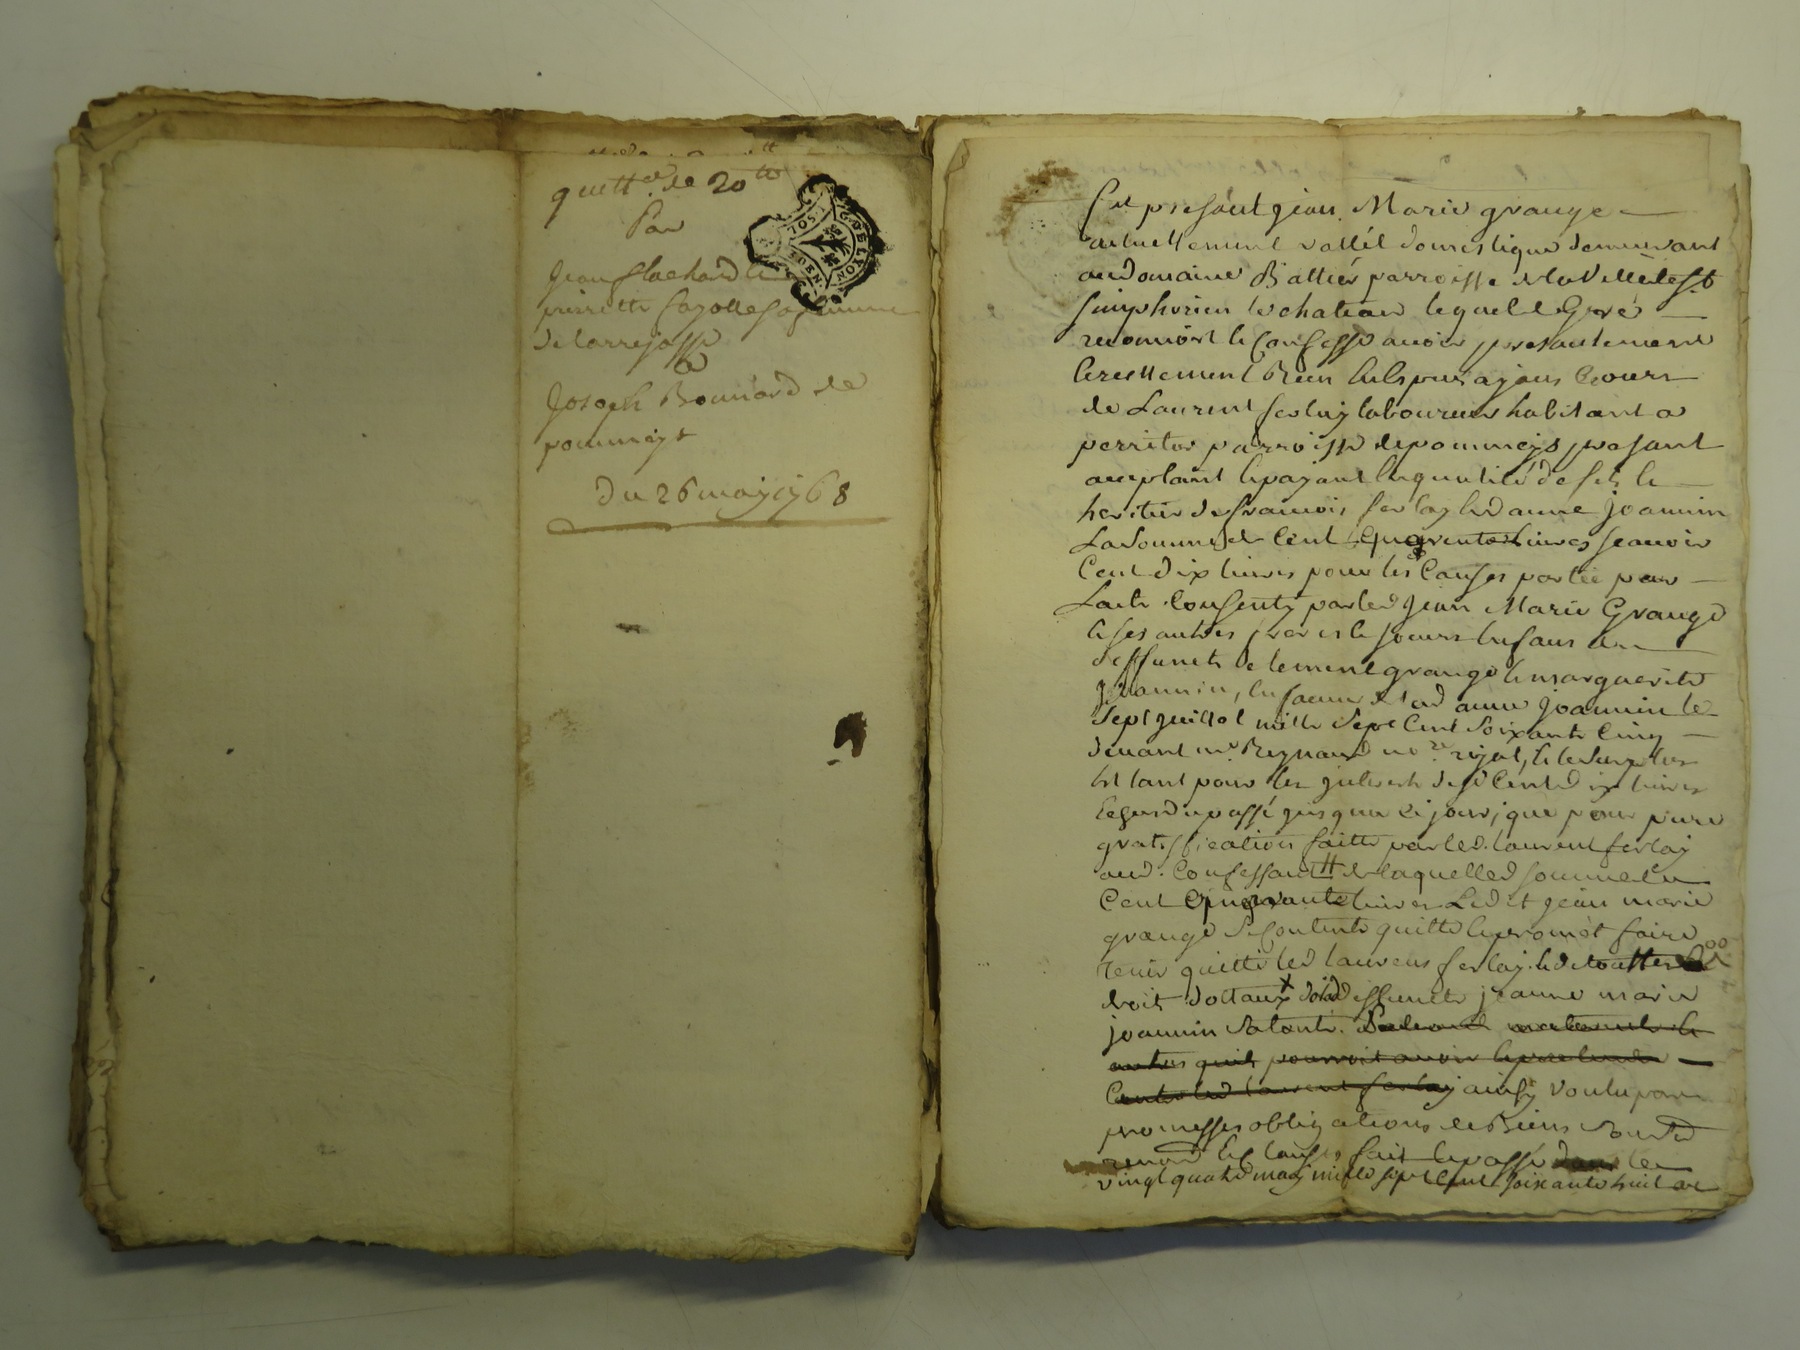 quitt.ce de 20 tt
Par
Jean flachard &
pierrette fayolle sa femme
de larrejasse
a
Joseph Bonnard de
pommeys
du 26 may 1768
GEN. DE LYON
Est presant jean Marie grange
actuellement vallét domestique demeurant
au domaine parroisse de la Ville de St
simphorien le chateau lequel de Gré
reconnoist & confesse avoir presantement
& reellement Reçu
de Laurent ferlay laboureur habitant a
parroisse de pommeys presant
acceptant & payant en qualité de fils &
heritier de francois ferlay & d'anne Joannin
La somme de Cent quarente livres scavoir
Cent dix livres pour les Causes portée par
Lacte Consenty par led jean Marie Grange
& ses autres freres & soeurs enfans de
deffuncts Clement grange & marguerite
Joannin, en faveur de lad anne Joannin le
sept juillet mille sept Cent soixante Cinq
devant me. Reynaud no.re royal, & le surplus
est tant pour les jnterets desd Cent dix livres
du passé jusques a ce jour, que pour pure
gratiffication faitte par led. laurent ferlay
aud. Confessant # de laquelle d somme de
Cent quarante livres Ledit jean marie
grange se Contente quitte & promet faire
tenir quitte led laurens ferlay. & de touttes
droit dottaux x de lad deffuncte jeanne marie
joannin sa tante.
autres quil pourroit avoir & pretendre
Contre led laurent ferlay ainsy voulu par
promesses obligations de Biens
renond & Clauses fait & passé le
vingt quatre may mille sept Cent soixante huit av